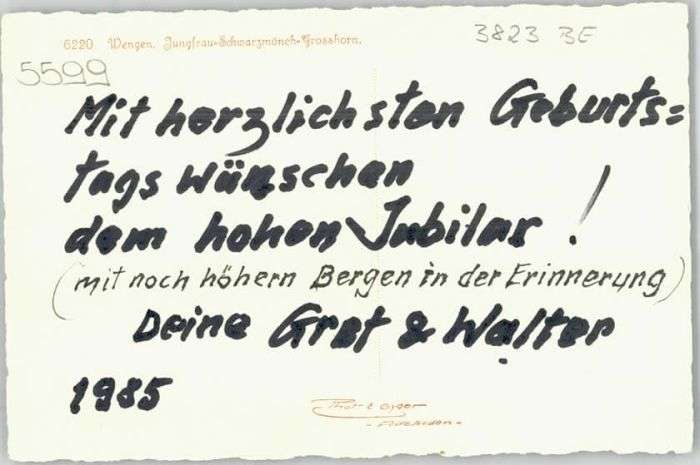 6220. Wengen. Jungfrau-Schwarzmönch-Grosshorn.
3823 BE
5599
Mit herzlichsten Geburts=
tags wünschen
dem hohen Jubilar !
(mit noch höhern Bergen in der Erinnerung)
Deine Gret & Walter
1985